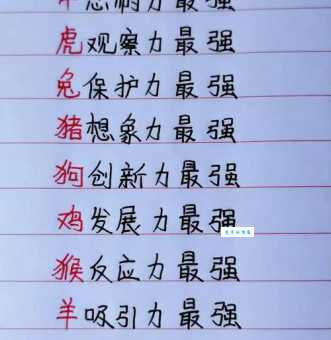 力最强
虎观察力最强
兔保护力最强
猪想象力最强
狗创新力最强
鸡发展力最强
猴反应力最强
羊吸引力最强